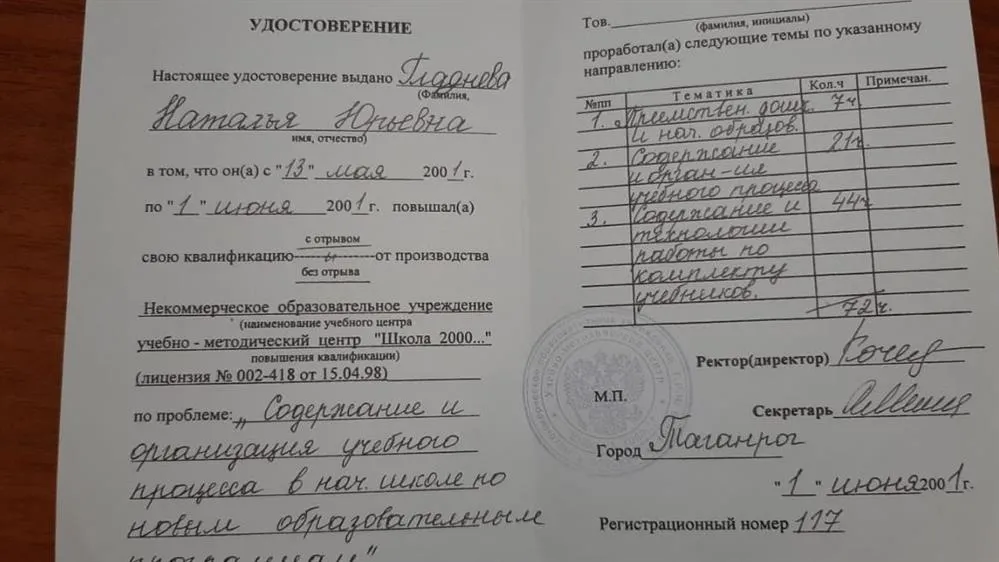 УДОСТОВЕРЕНИЕ
Настоящее удостоверение выдано
(Фамилия,
Наталья Юрьевна
имя, отчество)
в том, что он(а) с "13" мая 2001г.
по "1" июня 2001г. повышал(а)
с отрывом
свою квалификацию от производства
без отрыва
Некоммерческое образовательное учреждение
(наименование учебного центра
учебно - методический центр "Школа 2000..."
повышения квалификации)
(лицензия № 002-418 от 15.04.98)
по проблеме: „Содержание и
организация учебного
процесса в нач. школе по
новым образовательным
программам"
Тов.
(фамилия, инициалы)
проработал(а) следующие темы по указанному
направлению:
№пп Тематика Кол.ч Примечан.
1. дошк. 7ч
и нач. образов.
2. Содержание 21ч.
и орган-ия
учебного процесса
3. Содержание и 44ч
технологии
работы по
комплекту
учебников.
72ч.
Ректор(директор)
М.П.
Секретарь
Город Таганрог
"1" июня 2001г.
Регистрационный номер 117